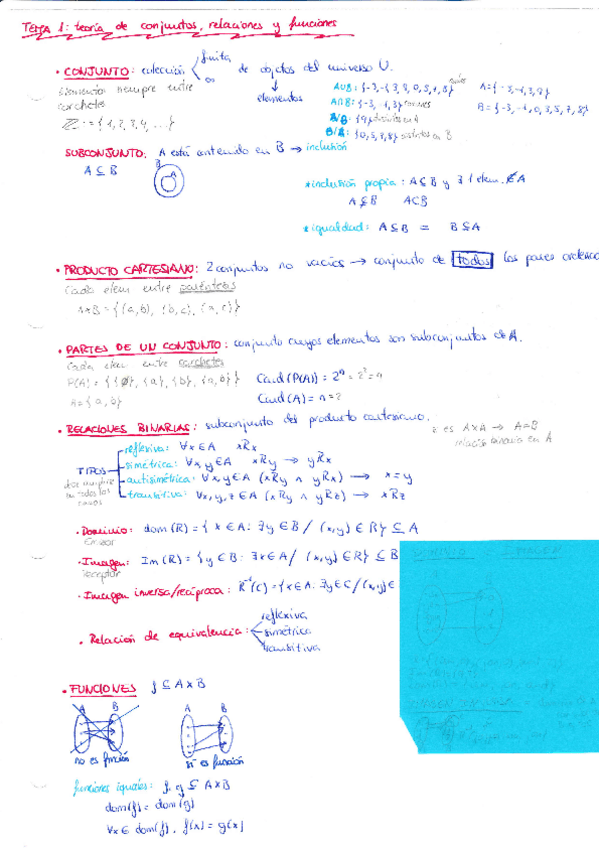 TEMA 1: teoría de conjuntos, relaciones y funciones
· CONJUNTO: colección finita de objetos del universo U.
∞ elementos
Elementos siempre entre corchetes
A∪B: {-3,-1,3,9,0,5,7,8}
A={-3,-1,3,9}
B={-3,-1,0,3,5,7,8}
B/A: {0,5,7,8} distintos en B
SUBCONJUNTO: A está contenido en B → inclusión
A ⊆ B
B
A
*inclusión propia: A⊆B y ∃ 1 elem. ∉A
A⊊B A⊂B
*igualdad: A⊆B = B⊆A
· PRODUCTO CARTESIANO: 2 conjuntos no vacíos → conjunto de todos los pares
Cada elem entre paréntesis
AxB = {(a,b), (b,c), (a,c)}
· PARTES DE UN CONJUNTO: conjunto cuyos elementos son subconjuntos de A.
Cada elem entre corchetes
P(A) = {{∅}, {a}, {b}, {a,b}}
Card(P(A)) = 2ⁿ = 2² = 4
A={a,b}
Card(A) = n = 2
· RELACIONES BINARIAS: subconjunto del producto cartesiano.
es AxA → A=B
relación binaria en A
TIPOS
reflexiva: ∀x∈A xRx
simétrica: ∀x,y∈A xRy → yRx
antisimétrica: ∀x,y∈A (xRy ∧ yRx) → x=y
transitiva: ∀x,y,z∈A (xRy ∧ yRz) → xRz
· Dominio: dom(R) = {x∈A: ∃y∈B / (x,y)∈R} ⊆ A
Emisor
· Imagen: Im(R) = {y∈B: ∃x∈A / (x,y)∈R} ⊆ B
receptor
· Imagen inversa/recíproca: R⁻¹(C) = {x∈A: ∃y∈C/(x,y)∈
· Relación de equivalencia:
reflexiva
simétrica
transitiva
· FUNCIONES f ⊆ AxB
A B A B
no es función sí es función
funciones iguales: f, g ⊆ AxB
dom(f) = dom(g)
∀x∈ dom(f), f(x) = g(x)